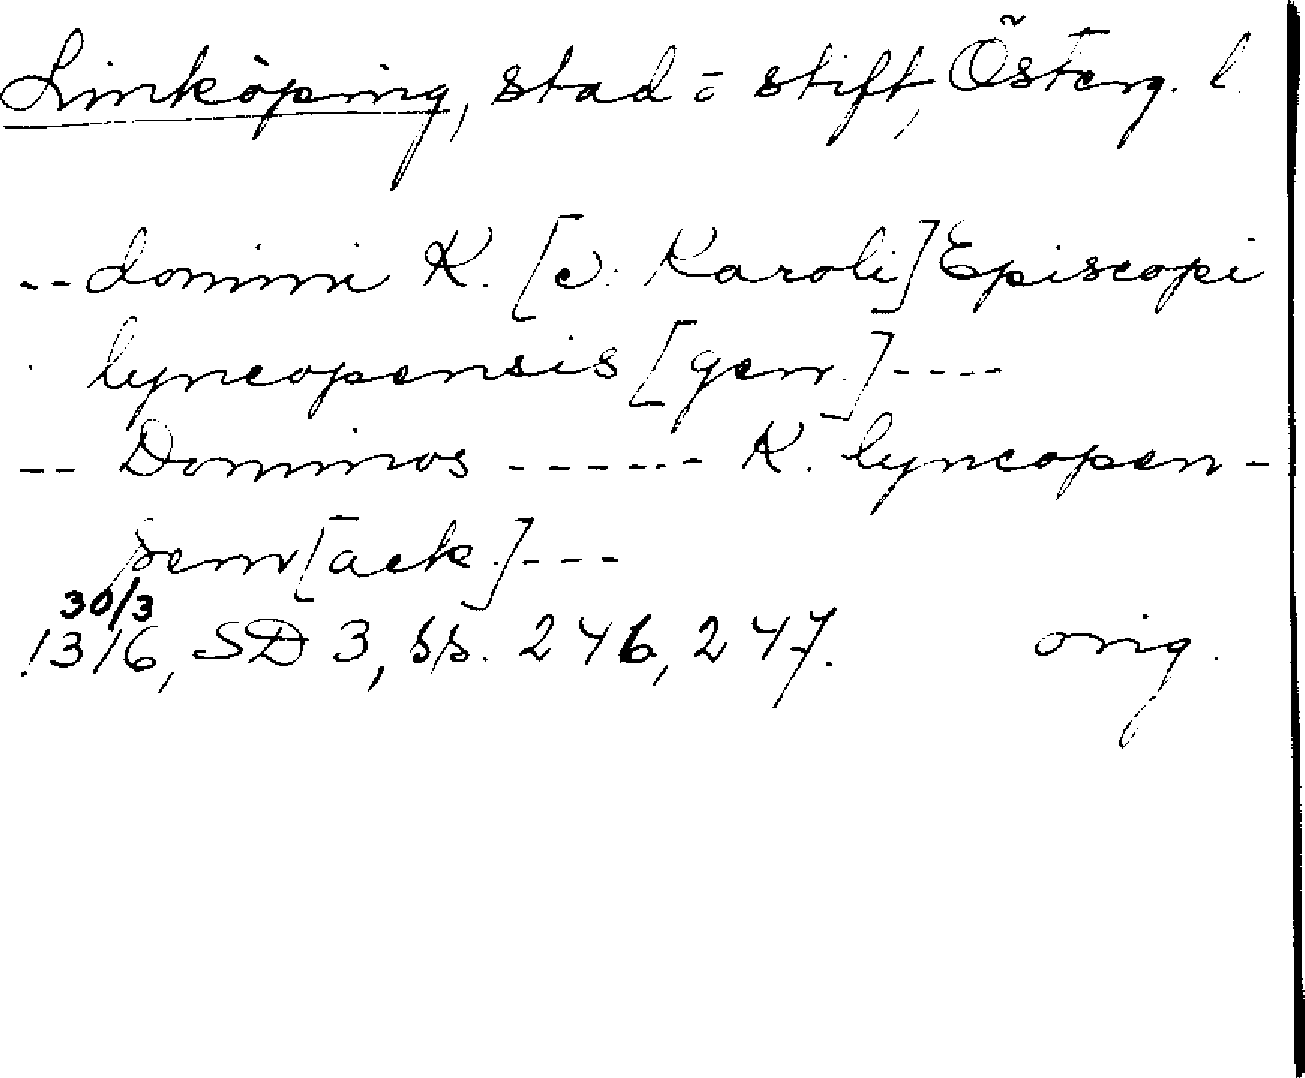 Linköping, stad = stift, Österg. l.
-- domini K. [ɔ: Karoli] Episcopi
lyncopensis [gen.] ----
-- Dominos ------ K. lyncopen-
sem [ack.] ---
30/3
1316, SD 3, ss. 246, 247. orig.